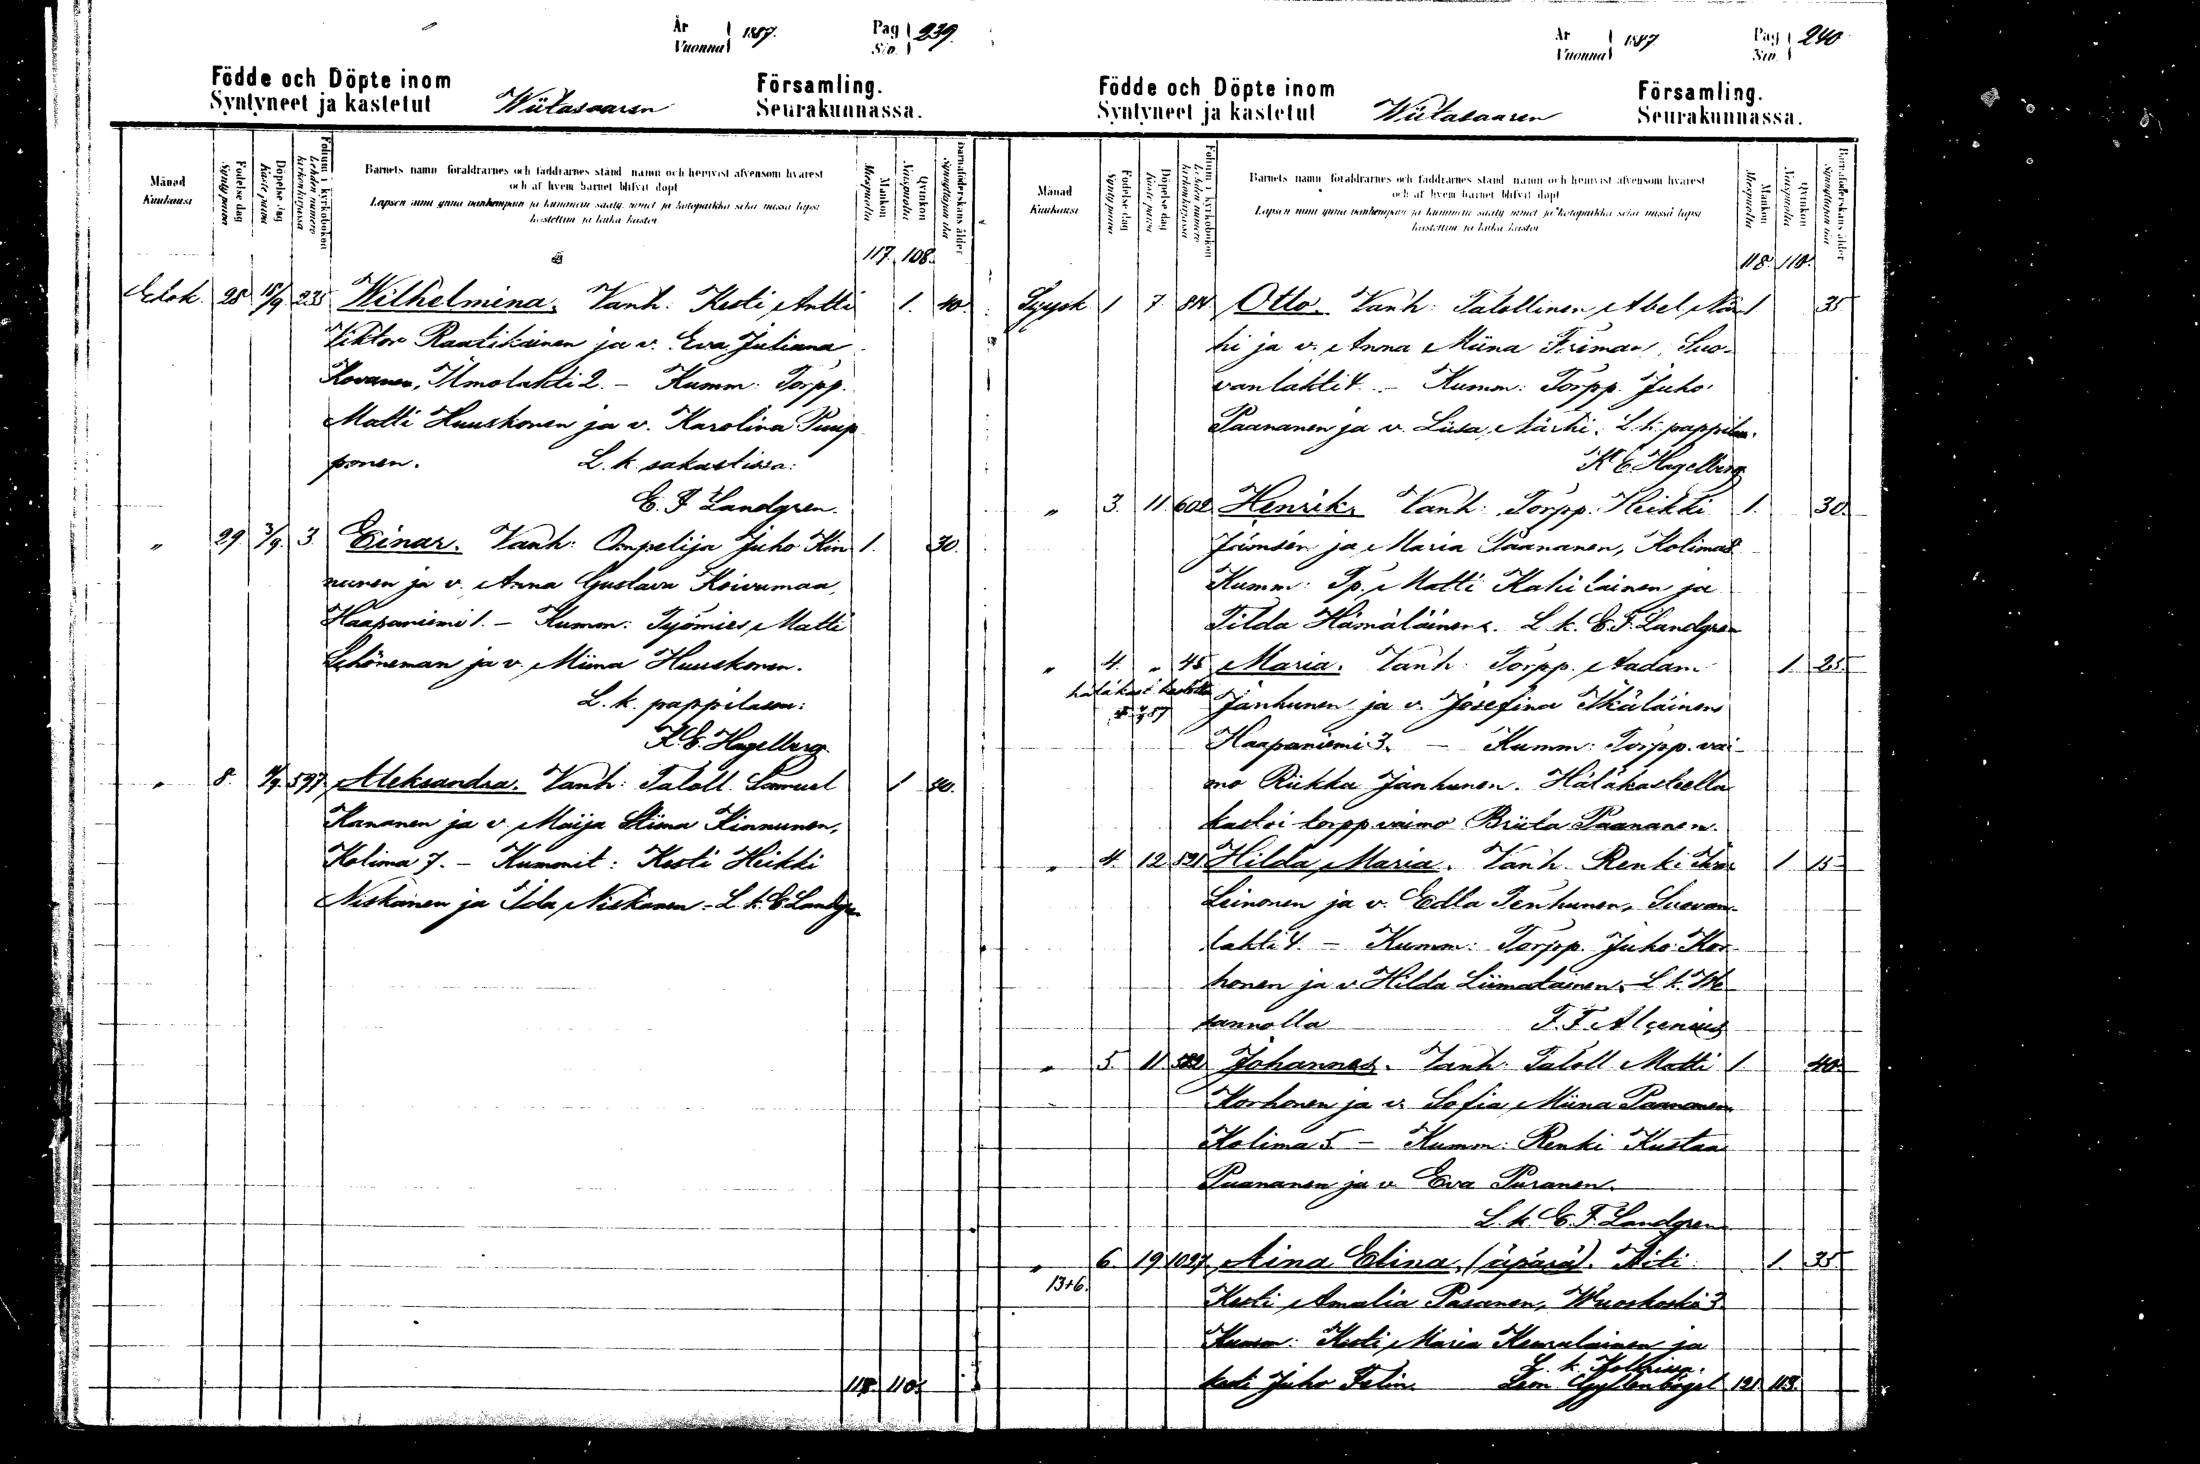 År Vuonna 1887. Pag Siv. 239.
Födde och Döpte inom Församling.
Syntyneet ja kastetut Wiitasaaren Seurakunnassa.
Månad Kuukausi
Födelse dag Synty päivä
Döpelse dag Kaste päivä
Folium i kyrkoboken Lehden numero kirkonkirjassa
Barnets namn föräldrarnes och faddrarnes stånd namn och hemvist äfvensom hvarest
och af hvem barnet blifvit döpt
Lapsen nimi ynnä vanhempain ja kummein sääty nimet ja kotopaikka sekä missä lapsi
kastettiin ja kuka kastoi
Mankön Miespuolta
Qvinkön Naispuolta
Barnaföderskans ålder Synnyttäjän ikä
117. 108.
Elok. 28 18/9 235 Wilhelmina. Vanh: Kesti Antti 1. 40.
Viktor Raatikainen ja v. Eva Juliana
Kovanen, Ilmolahti 2. – Kumm: Torpp.
Matti Huuskonen ja v. Karolina Pump
ponen. L. k. sakastissa:
E. F. Landgren.
„ 29 3/9. 3. Einar. Vanh: Ompelija Juho Kin 1. 30.
nunen ja v. Anna Gustava Koivumaa,
Haapaniemi 1. – Kumm: Työmies Matti
Schöneman ja v. Miina Huuskonen.
L. k. pappilassa:
K. E. Hagelberg.
„ 8. 597. Aleksandra. Vanh: Taloll. Samuel 1 40.
Kananen ja v. Maija Stiina Kinnunen,
Kolima 7. – Kummit: Kesti Heikki
Niskanen ja Ida Niskanen. L. k. E Landgren
118. 110.
År Vuonna 1887. Pag Siv. 240
Födde och Döpte inom Församling.
Syntyneet ja kastetut Wiitasaaren Seurakunnassa.
Månad Kuukausi
Födelse dag Synty päivä
Döpelse dag Kaste päivä
Folium i kyrkoboken Lehden numero kirkonkirjassa
Barnets namn föräldrarnes och faddrarnes stånd namn och hemvist äfvensom hvarest
och af hvem barnet blifvit döpt
Lapsen nimi ynnä vanhempain ja kummein sääty nimet ja kotopaikka sekä missä lapsi
kastettiin ja kuka kastoi
Mankön Miespuolta
Qvinkön Naispuolta
Barnaföderskans ålder Synnyttäjän ikä
118. 110.
Syysk 1 7. 814 Otto. Vanh: Talollinen Abel När 1 35
hi ja v. Anna Miina Friman, Suo-
vanlahti 4. – Kumm: Torpp. Juho
Paananen ja v. Liisa Närhi. L. k. pappilas.
K. E. Hagelberg
„ 3. 11. 602. Henrik. Vanh: Torpp. Heikki 1. 30.
Jämsén ja Maria Paananen, Kolima 8
Kumm: Tp. Matti Kahilainen ja
Tilda Hämäläinen. L. k. E. F. Landgren
„ 4. „ 45 Maria. Vanh: Torpp. Aadam 1. 25.
Janhunen ja v. Josefina Ikäläinen
Haapaniemi 3. – Kumm: Torpp. vai-
mo Riikka Janhunen. Hätäkasteella
kastoi torpp. vaimo Briita Paananen.
„ 4. 12 821 Hilda Maria. Vanh. Renki Ivar 1 15
Leinonen ja v. Edla Penhunen, Suovan-
lahti 4. – Kumm: Torpp. Juho Kor-
honen ja v Hilda Liimatainen. L. k. We
sannolla F. F. Alcenius
„ 5. 11 582 Johannes. Vanh: Taloll Matti 1 40.
Korhonen ja v. Sofia Miina Paananen
Kolima 5 – Kumm: Renki Kustaa
Paananen ja v. Eva Puranen.
L. k. E. F. Landgren
„ 6. 19 1097. Aina Elina. (äpärä). Äiti: 1. 35
13+6.
Kesti Amalia Pasanen, Wuoskoski 3.
Kumm: Kesti Maria Keuralainen ja
kesti Juho Felin. L. k. Leon Gyllenbögel 121. 113.